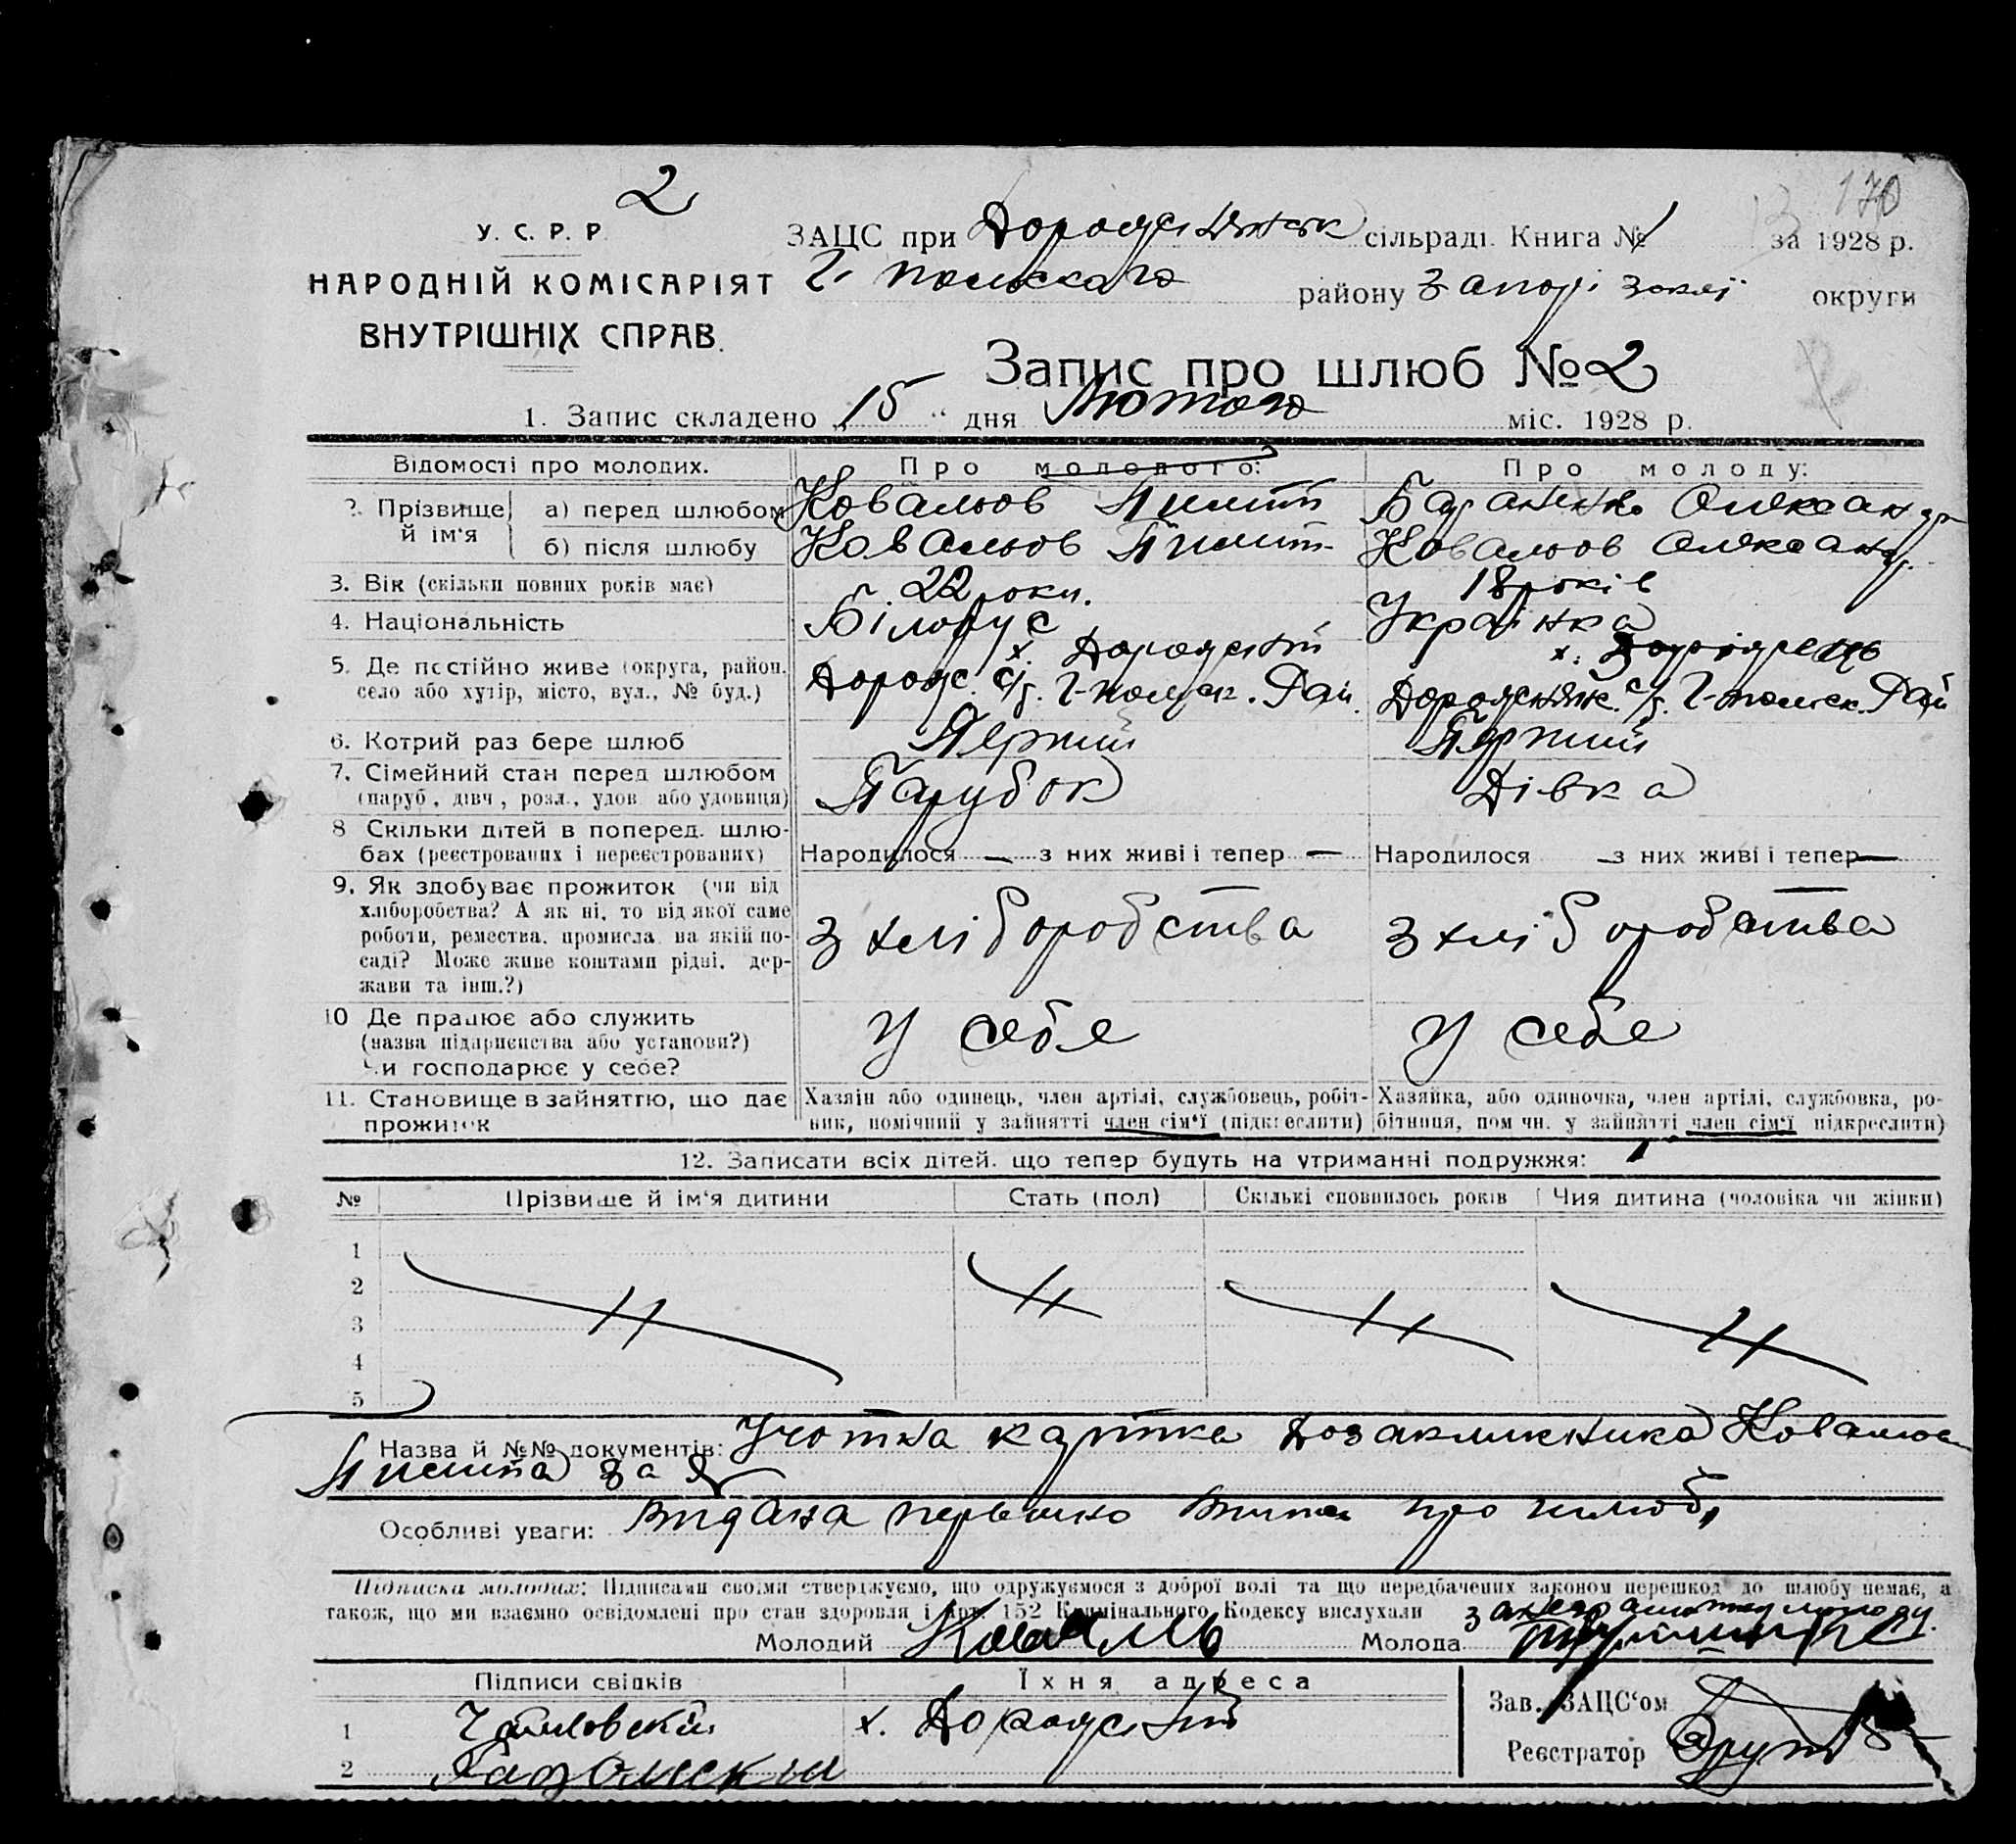 2
170
У. С. Р. Р.
НАРОДНІЙ КОМІСАРІЯТ
ВНУТРІШНІХ СПРАВ.
ЗАЦС при сільраді Книга № 1 за 1928 р.
району округи
Запис про шлюб № 2
1. Запис складено „15“ дня Лютого міс. 1928 р.
Відомості про молодих.
Про молодого:
Про молоду:
2. Прізвище й ім'я
а) перед шлюбом
Ковальов Пилип
Олександр
б) після шлюбу
Ковальов Пилип
Ковальов Олександр
3. Вік (скільки повних років має)
22 роки.
18 років
4. Національність
Білорус
Українка
5. Де постійно живе (округа, район,
село або хутір, місто, вул., № буд.)
х.
Г-польск. Рай.
х.
с/р. Г-польск. Рай
6. Котрий раз бере шлюб
Перший
Перший
7. Сімейний стан перед шлюбом
(паруб., дівч., розл., удов. або удовиця)
Парубок
Дівка
8 Скільки дітей в поперед. шлю-
бах (реєстрованих і нереєстрованих)
Народилося — з них живі і тепер —
Народилося — з них живі і тепер —
9. Як здобуває прожиток (чи від
хліборобства? А як ні, то від якої саме
роботи, ремества, промисла, на якій по-
саді? Може живе коштами рідні, дер-
жави та інш.?)
З хліборобства
З хліборобства
10 Де працює або служить
(назва підприємства або установи?)
Чи господарює у себе?
У себе
У себе
11. Становище в зайняттю, що дає
прожиток
Хазяїн або одинець, член артілі, службовець, робіт-
ник, помічний у зайнятті член сім'ї (підкреслити)
Хазяйка, або одиночка, член артілі, службовка, ро-
бітниця, пом чн. у зайнятті член сім'ї підкреслити)
12. Записати всіх дітей, що тепер будуть на утриманні подружжя:
№ Прізвище й ім'я дитини Стать (пол) Скількі сповнилось років Чия дитина (чоловіка чи жінки)
1
2
3
4
5
Назва й №№ документів: Учотна картка Ковальова
Пилипа за №
Особливі уваги: Видана про шлюб,
Підписка молодих: Підписами своїми стверджуємо, що одружуємося з доброї волі та що передбачених законом перешкод до шлюбу немає, а
також, що ми взаємно освідомлені про стан здоровля і арт. 152 Кримінального Кодексу вислухали
Молодий Коваль Молода
Підписи свідків Їхня адреса
1 х.
2
Зав. ЗАЦС'ом
Реєстратор